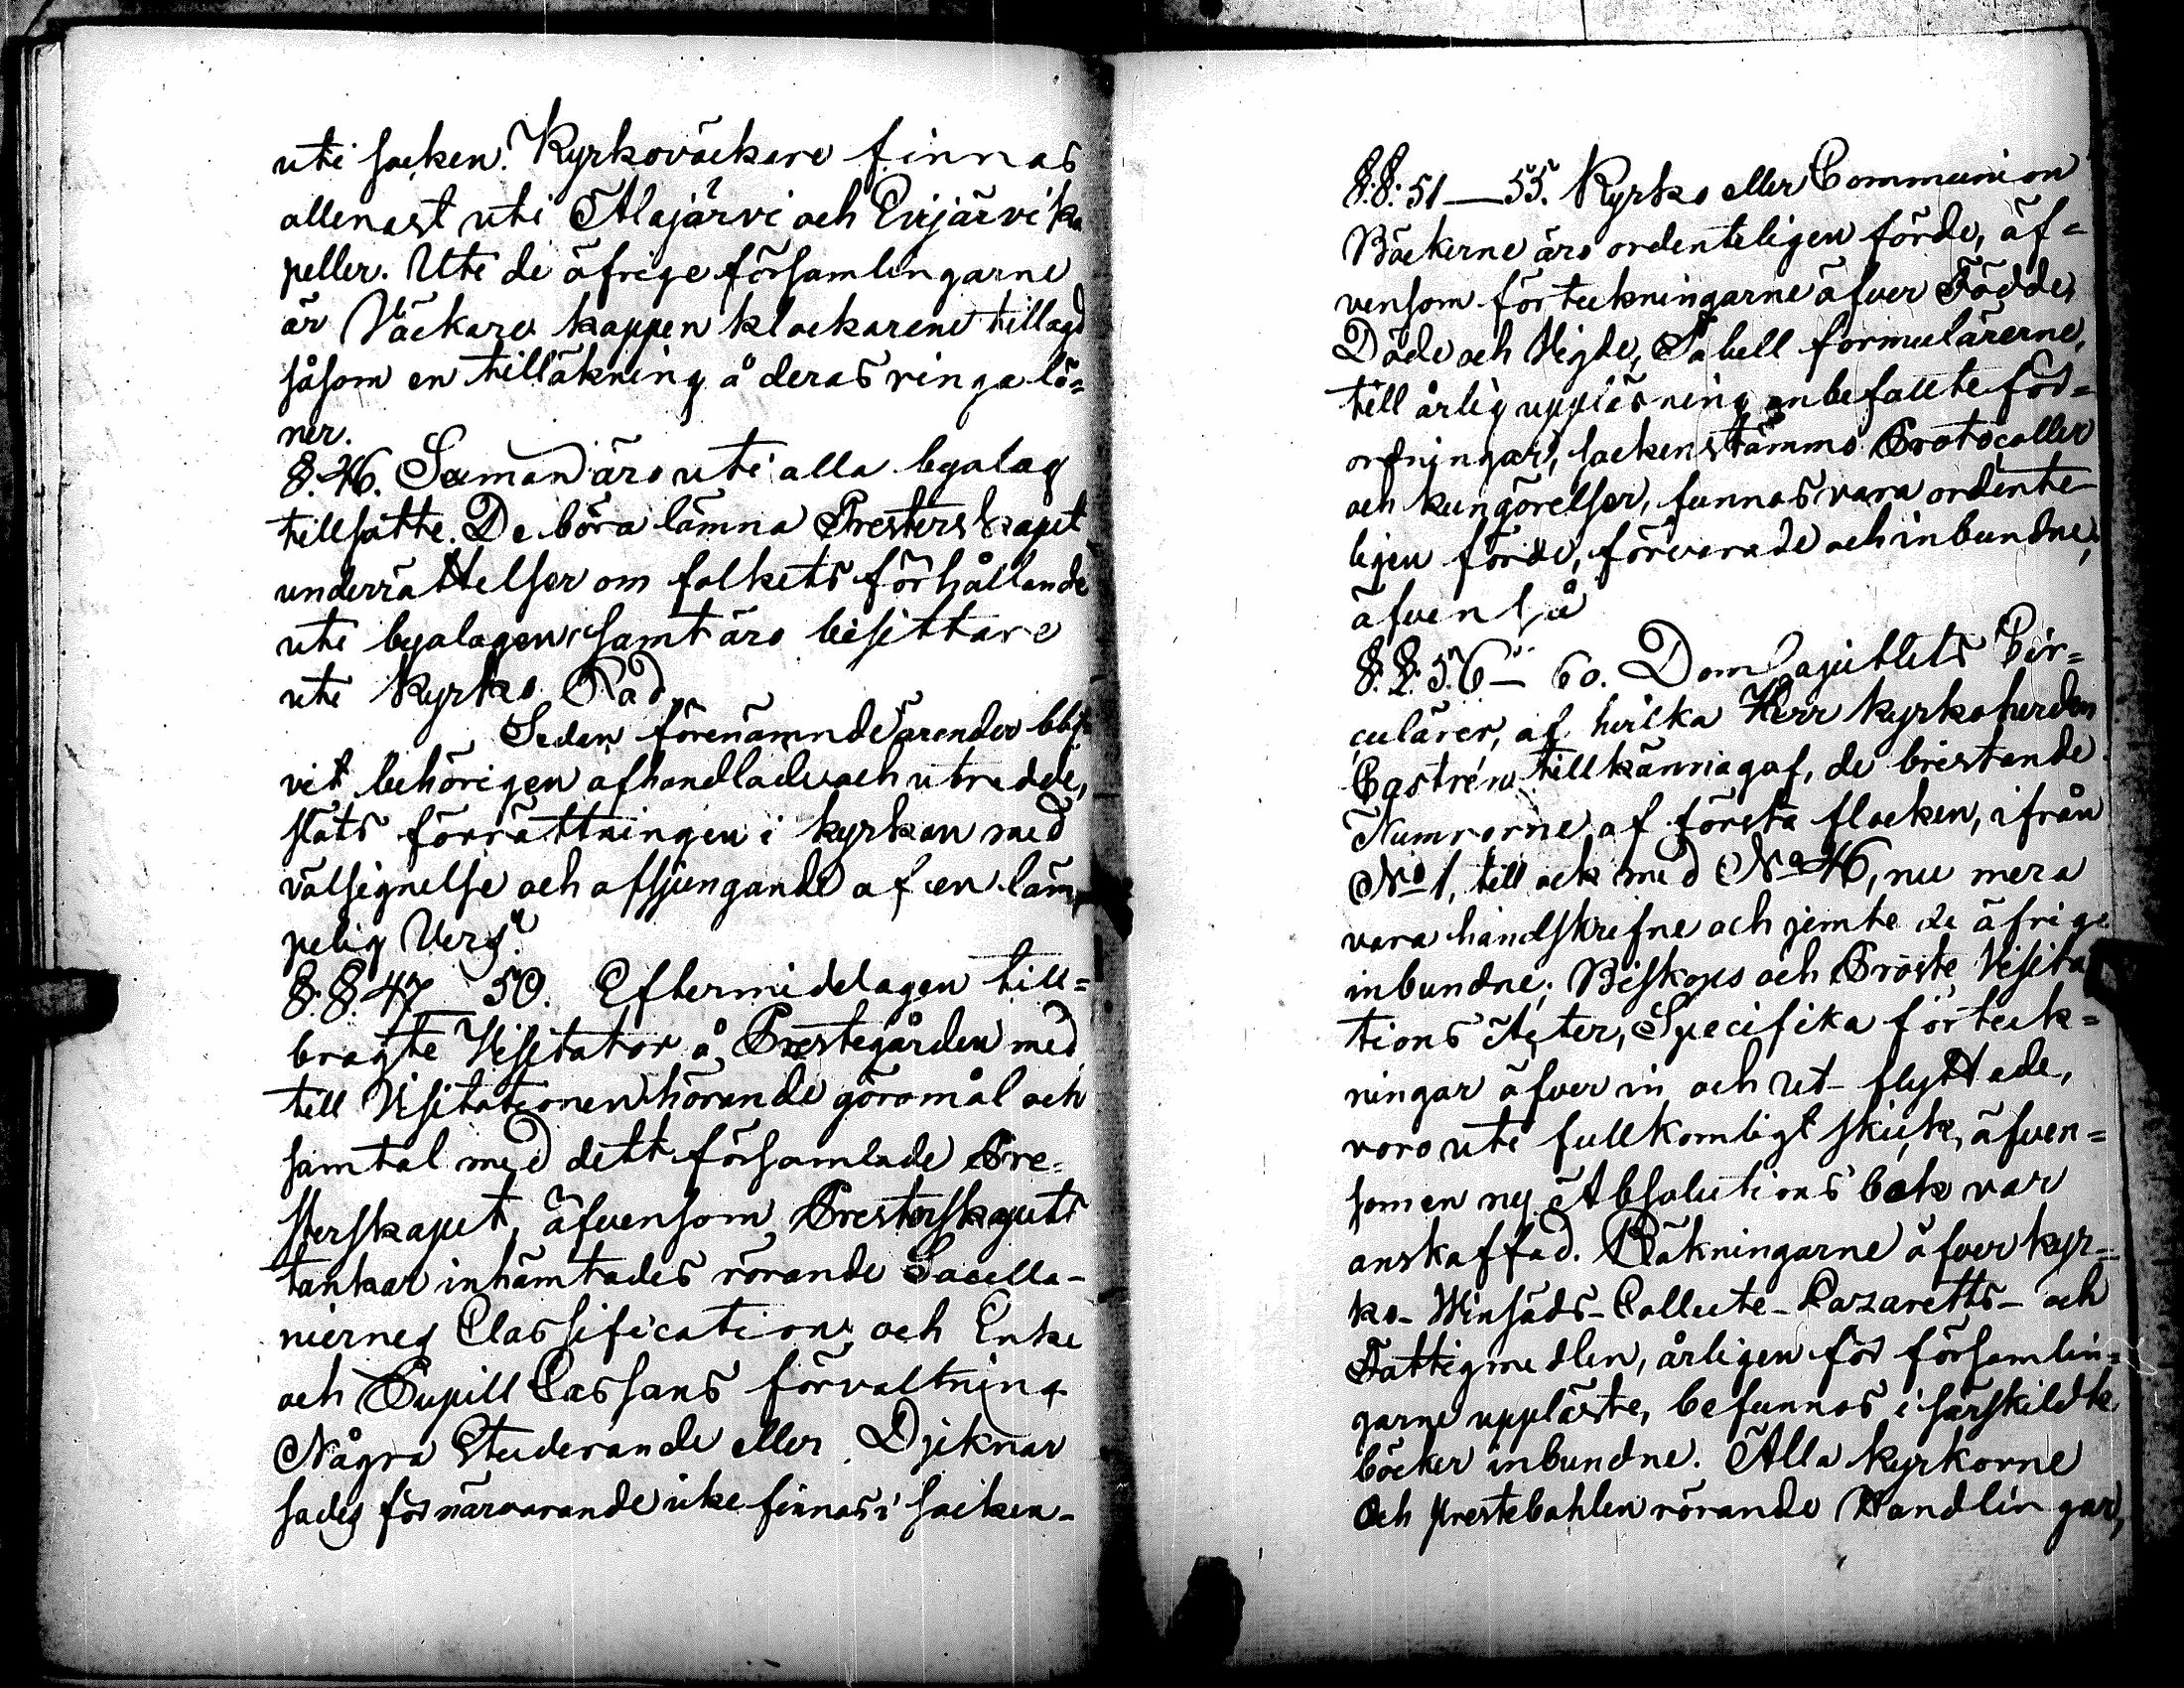 uti socken. Kyrkoväckare finnas
allenast uti Alajärvi och Evijärvi ka
peller. Uti de öfrige församlingarne
är Väckare kappen klockarene tillagd
såsom en tillökning å deras ringa lö=
ner.
§. 46. Sexmän äro uti alla byalag
tillsatte. De böra lämna Presterskapet
underrättelser om folkets förhållande
uti byalagen samt äro bisittare
uti Kyrko Råd
Sedan förenämnde ärender blif
vit behörigen afhandlade och utredde,
slöts förrättningen i kyrkan med
välsignelse och afsjungande af en läm
pelig Vers.
§.§. 47 — 50. Eftermiddagen till=
bragte Visitator å Prestegården med
till Visitationen hörande göromål och
samtal med dett församlade Pre=
sterskapet, äfvensom Presterskapets
tankar inhämtades rörande Sacella-
niernes Classification och Enke
och Pupill Cassans förvaltning
Några Studerande eller Djeknar
sades för närvarande icke finnas i socken-
§.§. 51 — 55. Kyrko eller Communion
Böckerne äro ordenteligen förde, äf=
vensom förteckningarne öfver Födde,
Döde och Vigde, Tabell formulärerne,
till årlig uppläsning anbefallte för=
ordningar, sockenstämmo Protocoller
och kungörelser, funnos vara ordente
ligen förde, förvarade och inbundne,
äfven så
§.§. 56 — 60. Dom Capittlets Cir=
culärer, af hvilka Herr kyrkoherden
Castrén tillkännagaf, de bristande
Numrorne af första flocken, ifrån
No 1, till och med No 46, nu mera
vara handskrifne och jemte de öfrige
inbundne; Biskops och Proste Visita
tions Acter, Specifika förteck=
ningar öfver in och ut- flyttade,
voro uti fullkomligt skick, äfven=
som en ny Absolutions bok var
anskaffad. Räkningarne öfver kyr=
ko- Winsäds- Collecte- Lazaretts- och
Fattigmedlen, årligen för församlin=
garne uppläste, befunnos i särskildte
böcker inbundne. Alla kyrkorne
Och prestebohlen rörande Handlingar,